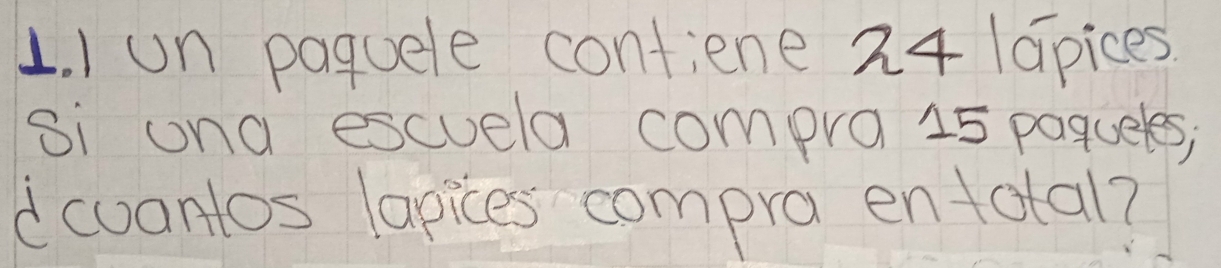 1.1 un paquete contiene 24 lápices.
Si una escuela compra 15 paquetes;
¿cuantos lapices compra en total?